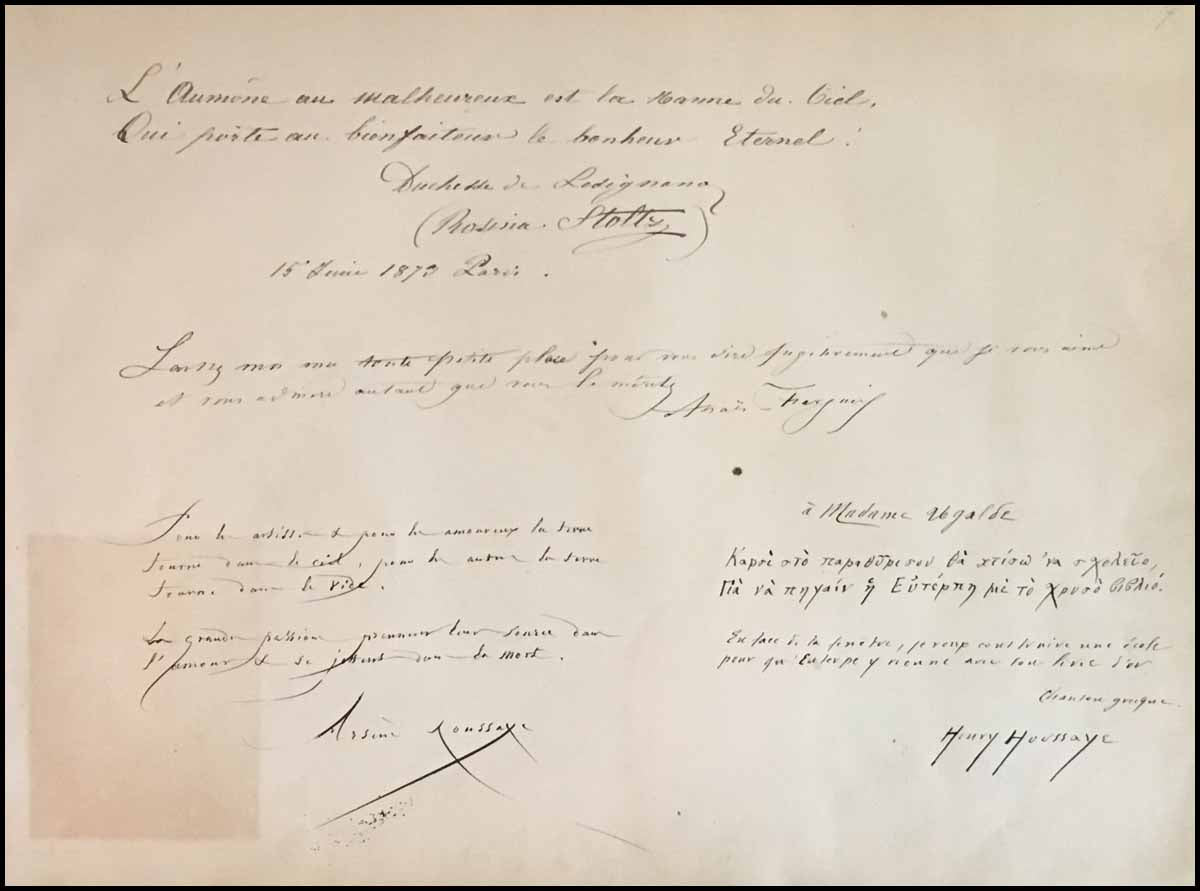 L'Aumône au malheureux est la Manne du Ciel,
Qui porte au bienfaiteur le bonheur Eternel!
Duchesse de Lesignano
(Rosina Stoltz)
15 Juin 1873 Paris.
Laissez moi ma toute petite place pour vous dire que je vous aime
et vous admire autant que vous le méritez
Anaïs Fargueil
Pour les artistes & pour les amoureux la terre
tourne dans le ciel, pour les autres la terre
tourne dans le vide.
Les grandes passions prennent leur source dans
l'amour & se jettent dans la mort.
Arsène Houssaye
à Madame Ugalde
Καρσὶ στὸ παροθῦρι σου θὰ χτίσω ἕνα σχολεῖο,
Γιὰ νὰ πηγαίν ἡ Εὐτέρπη μὲ τὸ χρυσὸ βιβλιό.
En face de ta fenêtre, je veux construire une école
pour qu'Euterpe y vienne avec son livre d'or
Chanson grecque.
Henry Houssaye